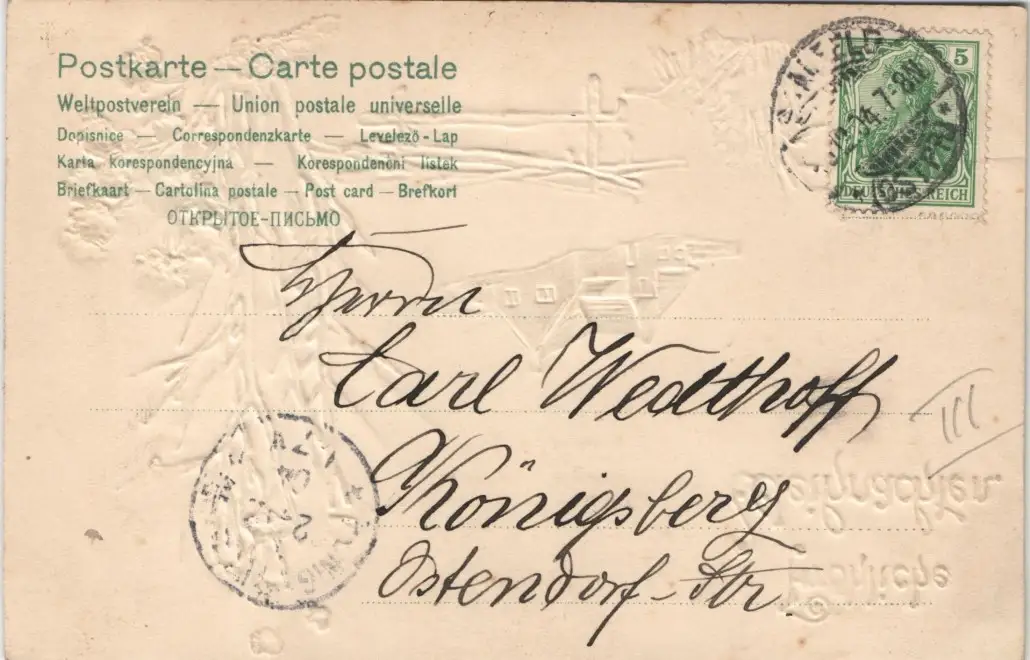 Postkarte — Carte postale
Weltpostverein — Union postale universelle
Dopisnice — Correspondenzkarte — Levelező-Lap
Karta korespondencyjna — Korespondenční lístek
Briefkaart — Cartolina postale — Post card — Brefkort
ОТКРЫТОЕ-ПИСЬМО
5
DEUTSCHES REICH
7-8N
Herrn
Carl Wedthoff
Königsberg
Ostendorf-Str.
III
Fröhliche
Weihnachten.